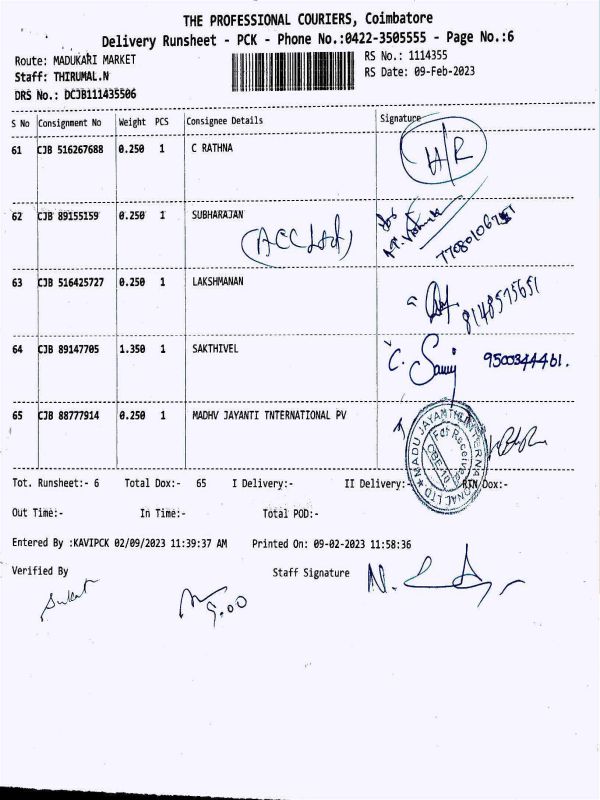 THE PROFESSIONAL COURIERS, Coimbatore
Delivery Runsheet - PCK - Phone No.:0422-3505555 - Page No.:6
Route: MADUKARI MARKET
RS No.: 1114355
Staff: THIRUMAL.N
RS Date: 09-Feb-2023
DRS No.: DCJB111435506
S No Consignment No Weight PCS Consignee Details Signature
61 CJB 516267688 0.250 1 C RATHNA H/R
62 CJB 89155159 0.250 1 SUBHARAJAN
63 CJB 516425727 0.250 1 LAKSHMANAN 8148575651
64 CJB 89147705 1.350 1 SAKTHIVEL C. 9500344461.
65 CJB 88777914 0.250 1 MADHV JAYANTI TNTERNATIONAL PV
MADU JAYANTHI INTERNATIONAL LTD
For Received
Tot. Runsheet:- 6 Total Dox:- 65 I Delivery:- II Delivery:- RTN Dox:-
Out Time:- In Time:- Total POD:-
Entered By :KAVIPCK 02/09/2023 11:39:37 AM Printed On: 09-02-2023 11:58:36
Verified By Staff Signature
9.00